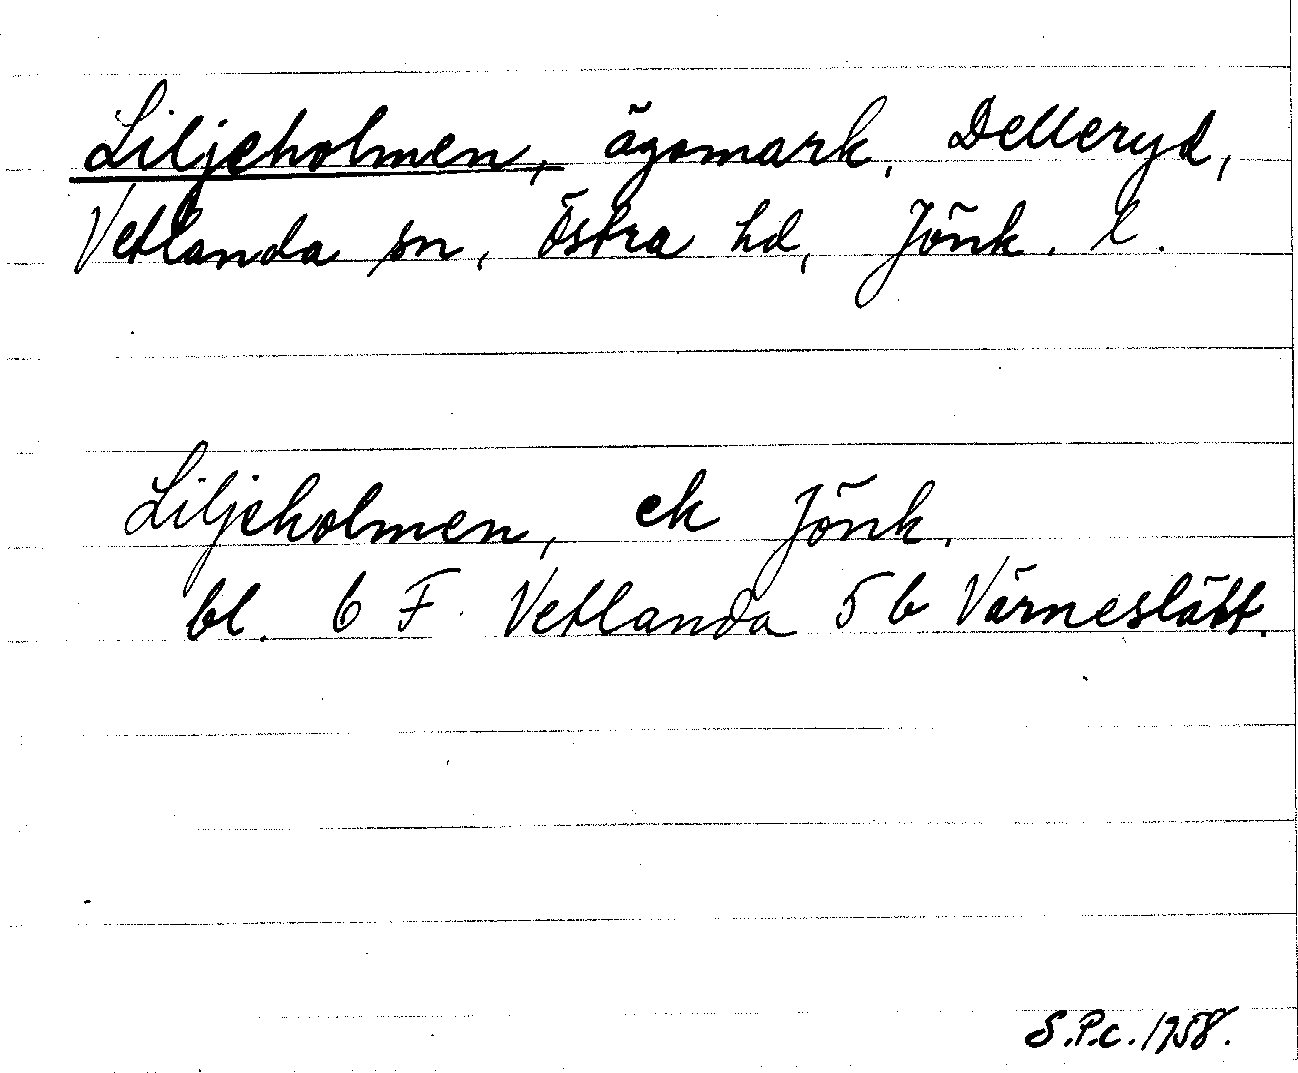 Liljeholmen, ägomark, Delleryd,
Vetlanda sn, Östra hd, Jönk. l.
Liljeholmen, ek Jönk.
bl. 6 F Vetlanda 5 b Värneslätt.
S.P.c. 1958.